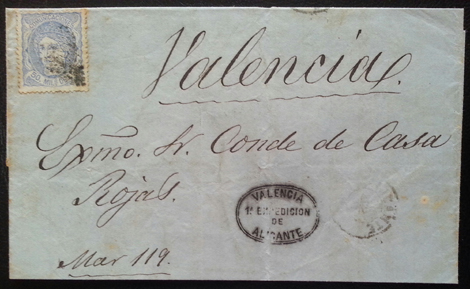 Valencia.
Exmo. Sr. Conde de Casa
Rojas.
VALENCIA
1ª EXPEDICION
DE
ALICANTE
Mar 119.